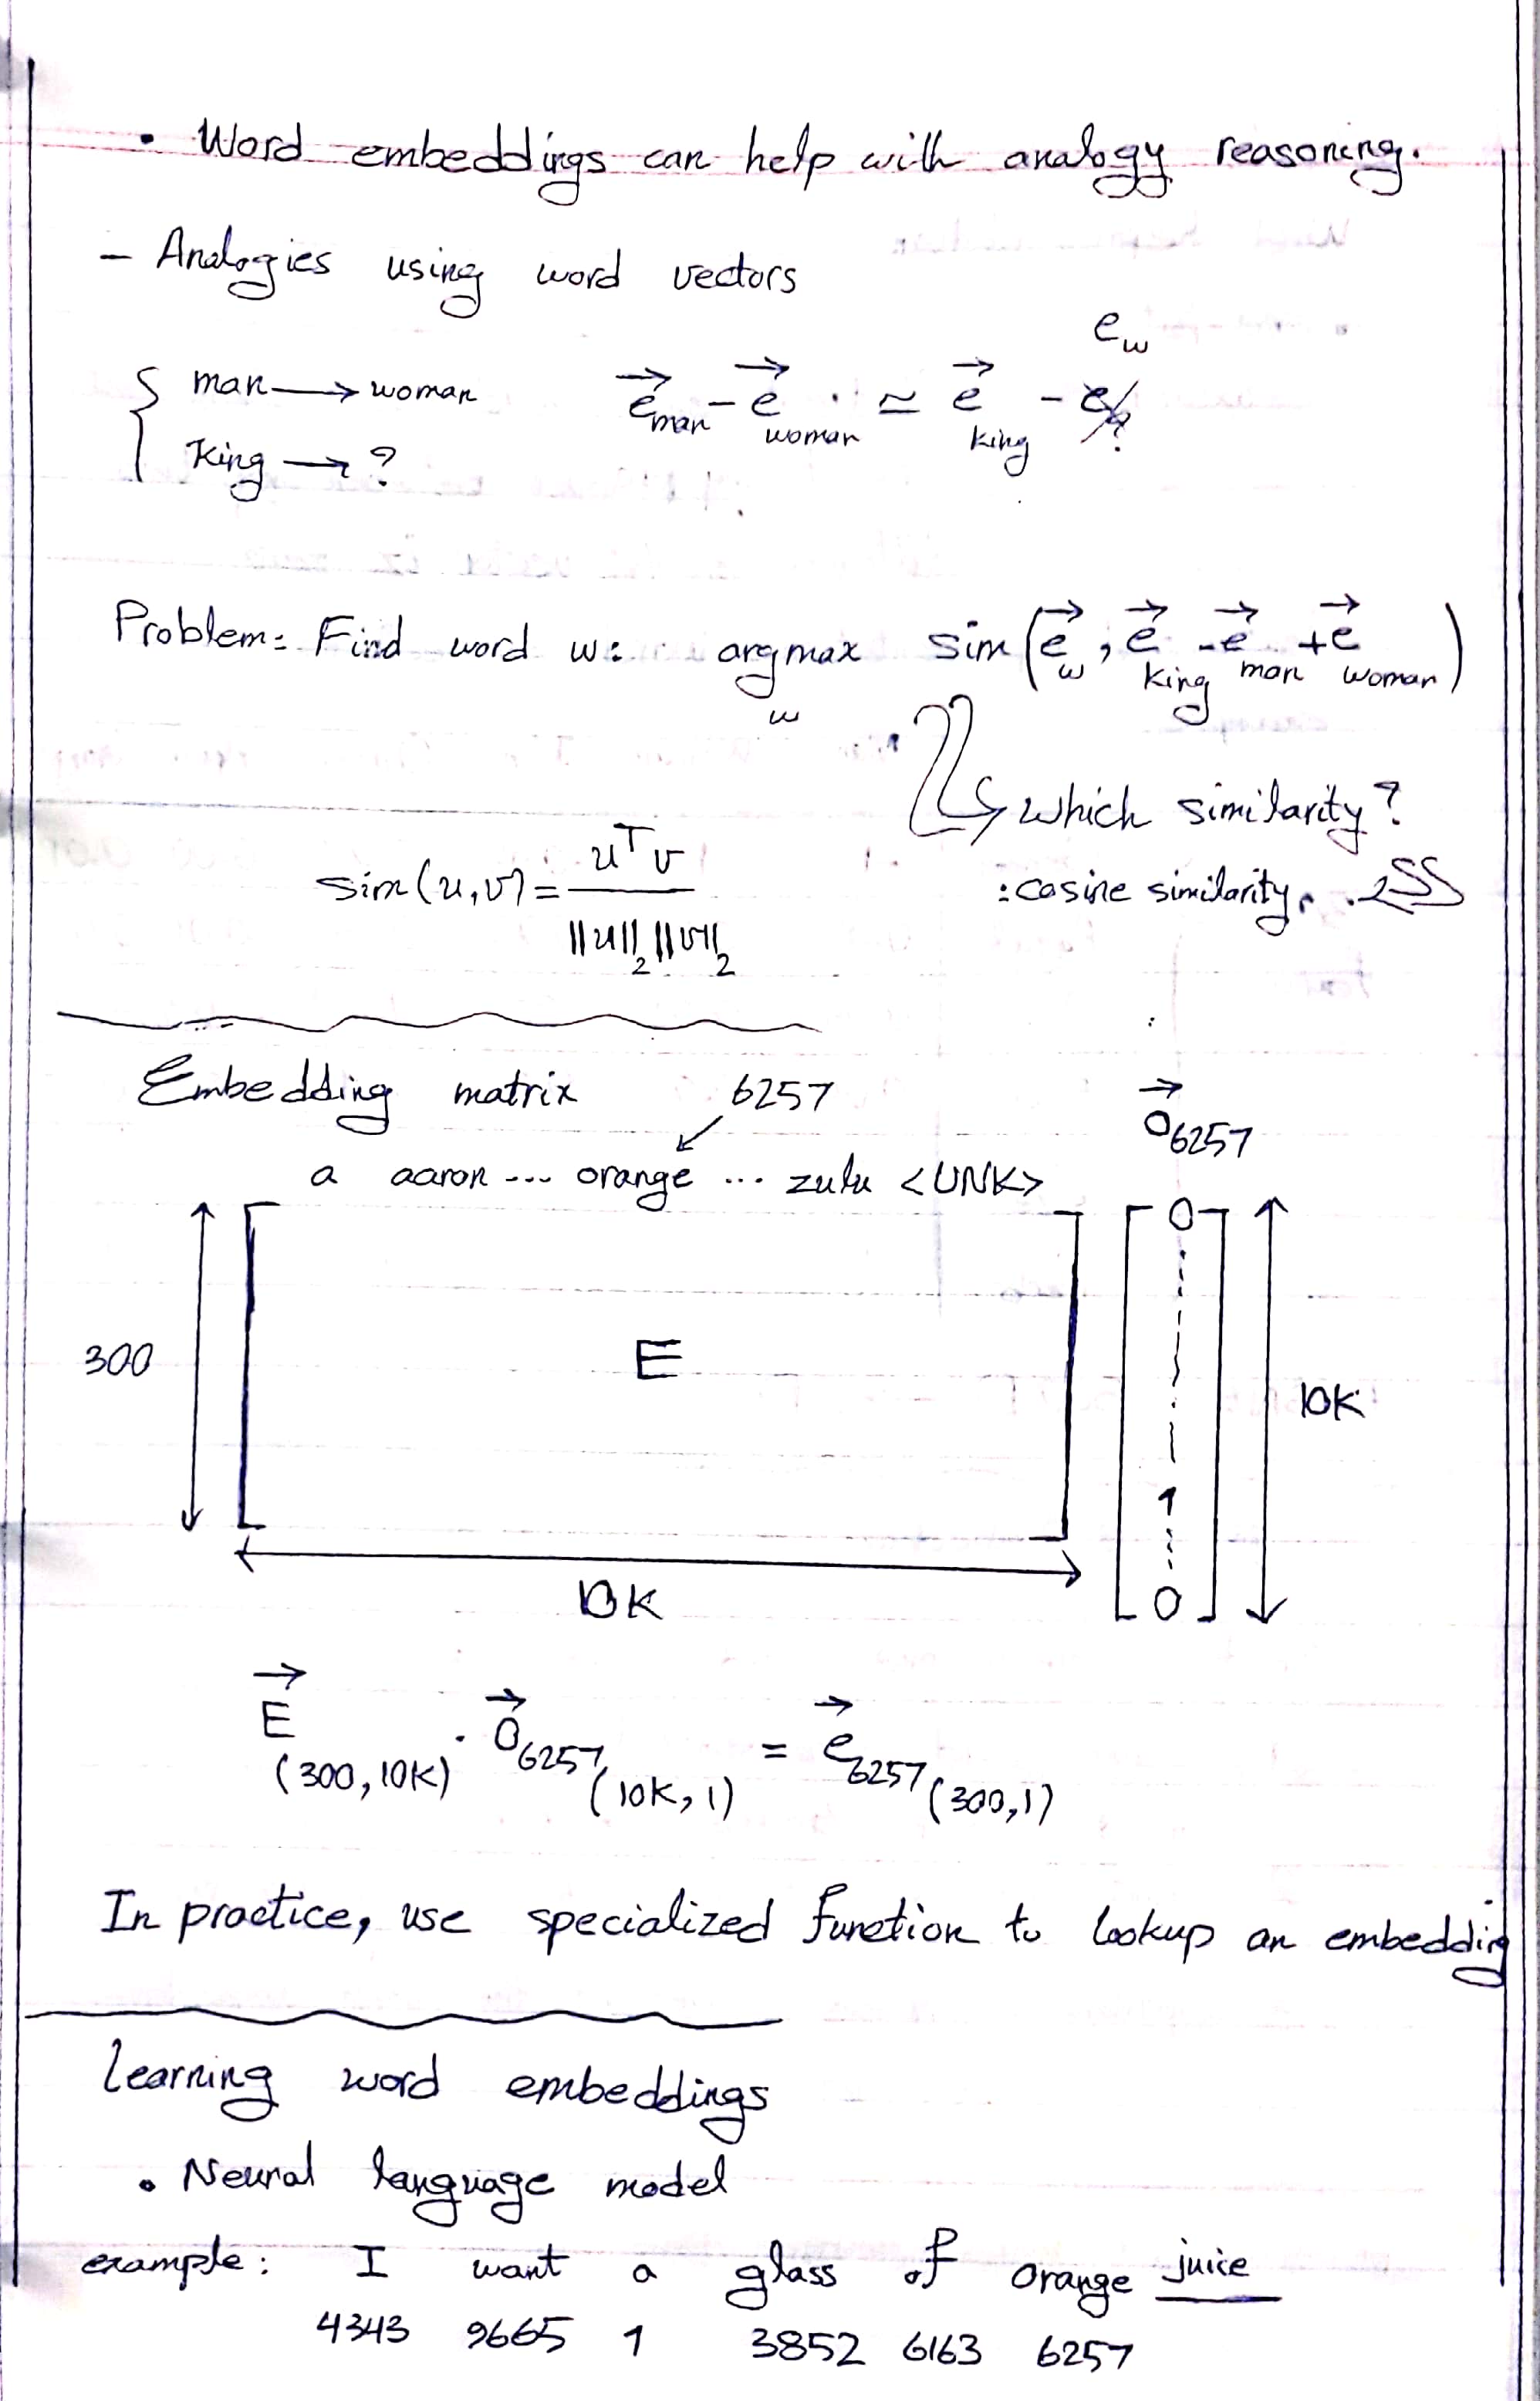 • Word embeddings can help with analogy reasoning.
– Analogies using word vectors
e_w
man → woman e_man - e_woman ≃ e_king - e_?
King → ?
Problem: Find word w: argmax_w sim(e_w, e_king - e_man + e_woman)
which similarity?
sim(u,v) = u^T v / ||u||_2 ||v||_2
: cosine similarity
Embedding matrix 6257 o_6257
a aaron ... orange ... zulu <UNK>
0
300 E 10K
1
0
10K
E (300, 10K) · O_6257 (10K, 1) = e_6257 (300, 1)
In practice, use specialized function to lookup an embedding
Learning word embeddings
• Neural language model
example: I want a glass of orange juice
4343 9665 1 3852 6163 6257